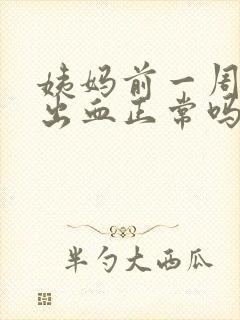 姨妈前一周
出血正常吗
半勺大西瓜